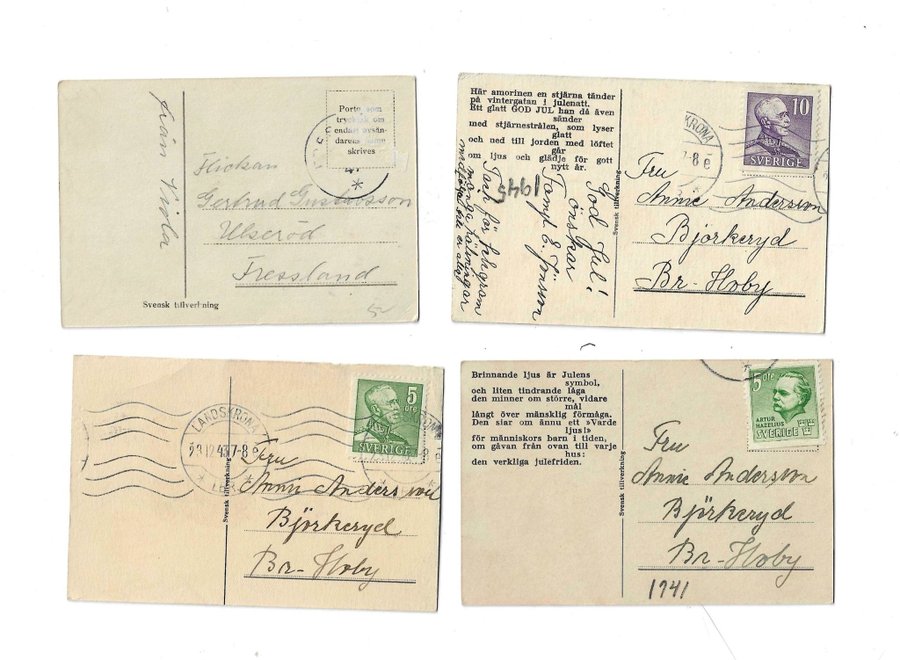 från Viola
Porto, som
tryckt, om
endast avsän-
darens namn
skrives
Flickan
Gertrud Gustavsson
Ulseröd
Fressland
Svensk tillverkning
Här amorinen en stjärna tänder
på vintergatan i julenatt.
Ett glatt GOD JUL han då även
sänder
med stjärnestrålen, som lyser
glatt
och ned till jorden med löftet
går
om ljus och glädje för gott
nytt år.
God Jul!
önskar
Tomf E. Jönsson
1945
Tack för pilgram
många hälsningar
Svensk tillverkning
10
SVERIGE
KRONA
7-8 e
Fru
Annie Andersson
Björkeryd
Br-Hoby
LANDSKRONA
29.12.43 7-8
5
öre
SVERIGE
Fru
Annie Andersson
Björkeryd
Br-Hoby
Svensk tillverkning
Brinnande ljus är Julens
symbol,
och liten tindrande låga
den minner om större, vidare
mål
långt över mänsklig förmåga.
Den siar om ännu ett »Varde
ljus!»
för människors barn i tiden,
om gåvan från ovan till varje
hus:
den verkliga julefriden.
Svensk tillverkning
5 öre
ARTUR
HAZELIUS
SVERIGE
Fru
Annie Andersson
Björkeryd
Br-Hoby
1941